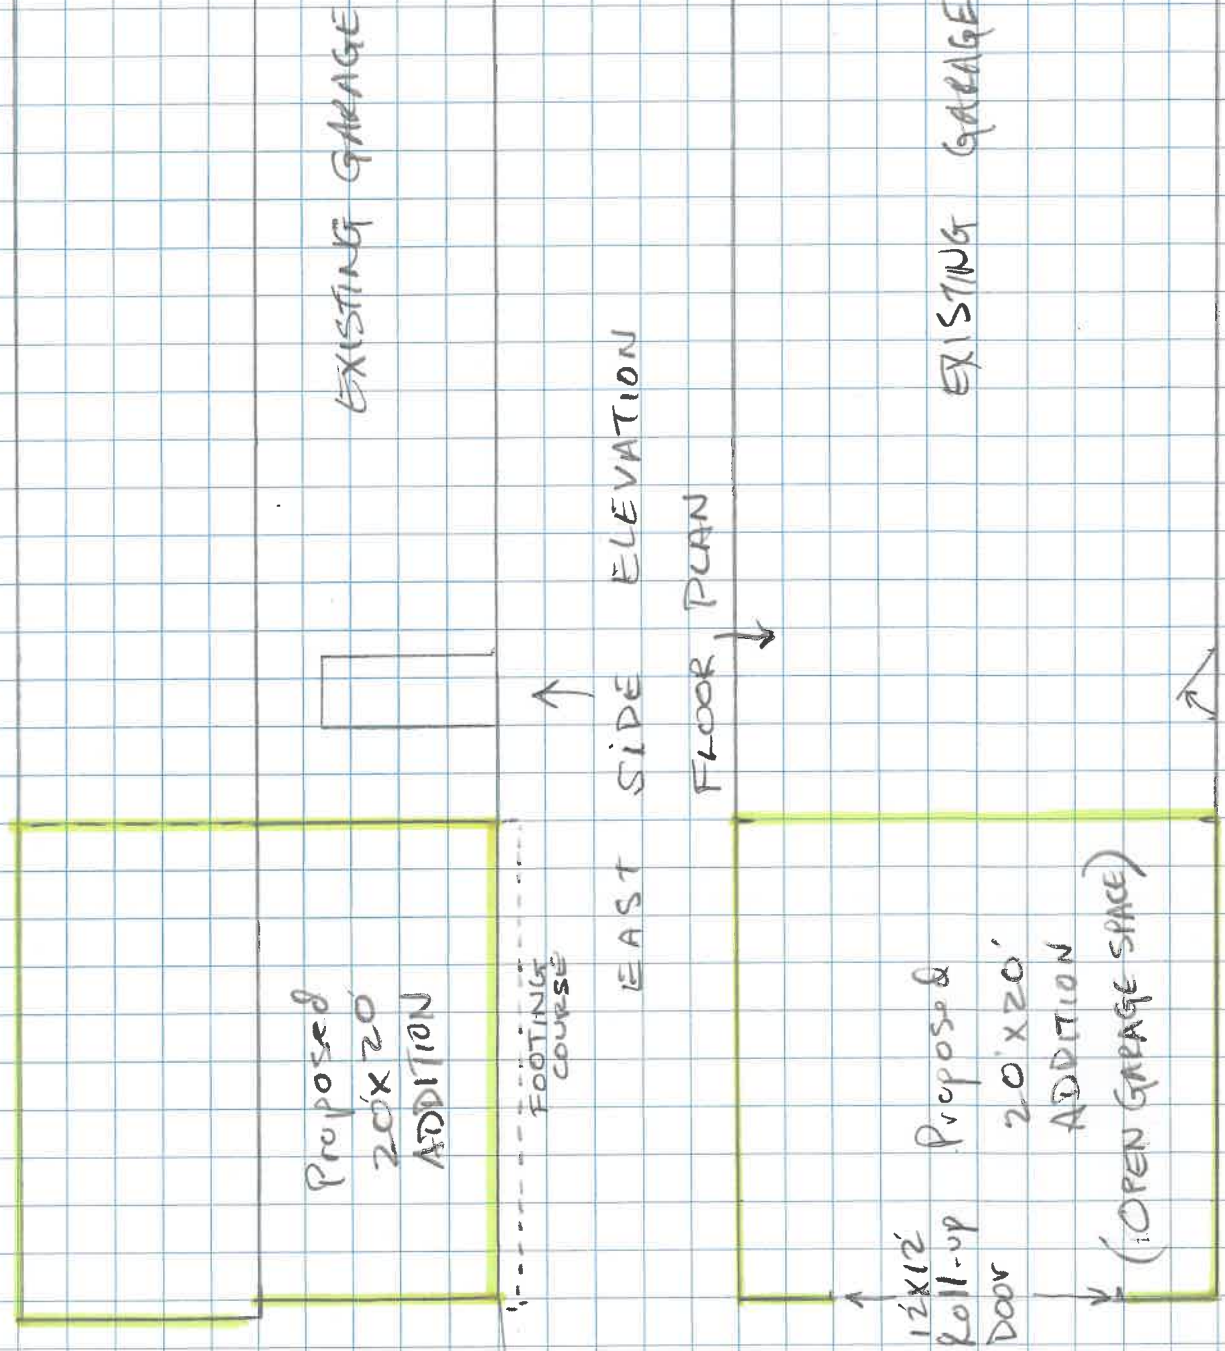 EXISTING GARAGE
Proposed
20'x20'
ADDITION
FOOTING
COURSE
EAST SIDE ELEVATION
FLOOR PLAN
EXISTING GARAGE
12'x12'
Roll-up
Door
Proposed
20'x20'
ADDITION
(OPEN GARAGE SPACE)